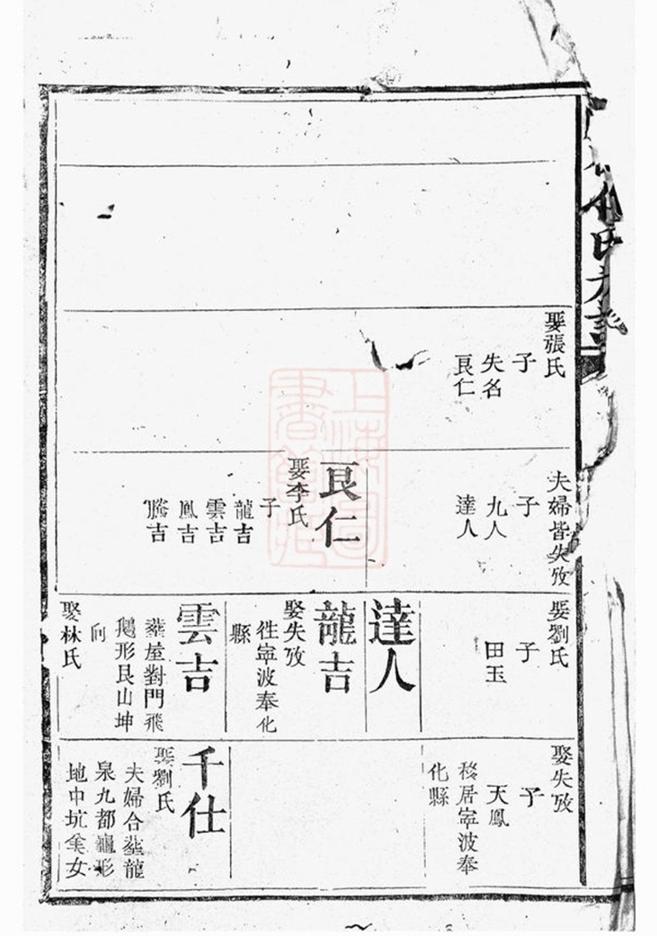 娶張氏
子
失名
良仁
夫婦皆失攷
子
九人
達人
良仁
娶李氏
子
龍吉
雲吉
鳳吉
騰吉
娶劉氏
子
田玉
達人
龍吉
娶失攷
徃寧波奉化
縣
雲吉
塟屋對門飛
鵝形艮山坤
向
娶林氏
娶失攷
子
天鳳
移居寧波奉
化縣
千仕
娶劉氏
夫婦合塟龍
泉九都龜形
地中坑
女